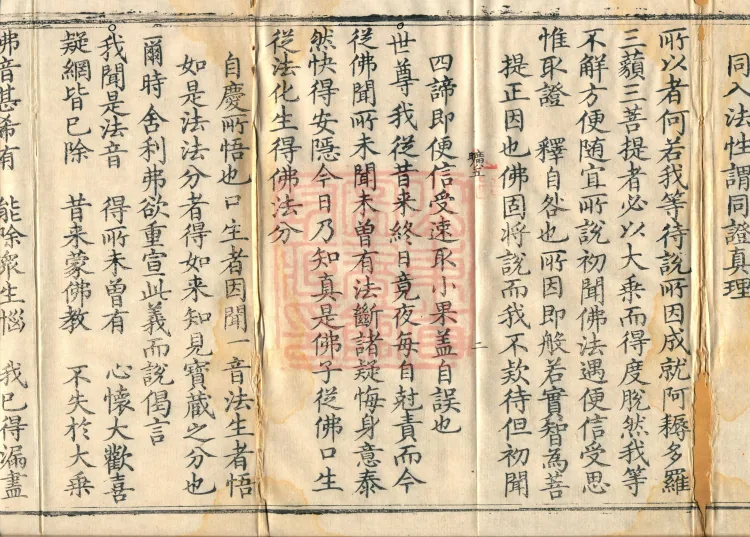 同入法性謂同證真理
所以者何若我等待說所因成就阿耨多羅
三藐三菩提者必以大乘而得度脫然我等
不解方便随宜所說初聞佛法遇便信受思
惟取證 釋自咎也所因即般若實智為菩
提正因也佛固將說而我不欵待但初聞
四諦即便信受速取小果盖自誤也
世尊我從昔来終日竟夜每自尅責而今
從佛聞所未聞未曾有法斷諸疑悔身意泰
然快得安隱今日乃知真是佛子從佛口生
從法化生得佛法分
自慶所悟也口生者因聞一音法生者悟
如是法法分者得如来知見寶蔵之分也
爾時舍利弗欲重宣此義而說偈言
我聞是法音 得所未曾有 心懷大歡喜
疑網皆已除 昔来蒙佛教 不失於大乘
佛音甚希有 能除衆生惱 我已得漏盡